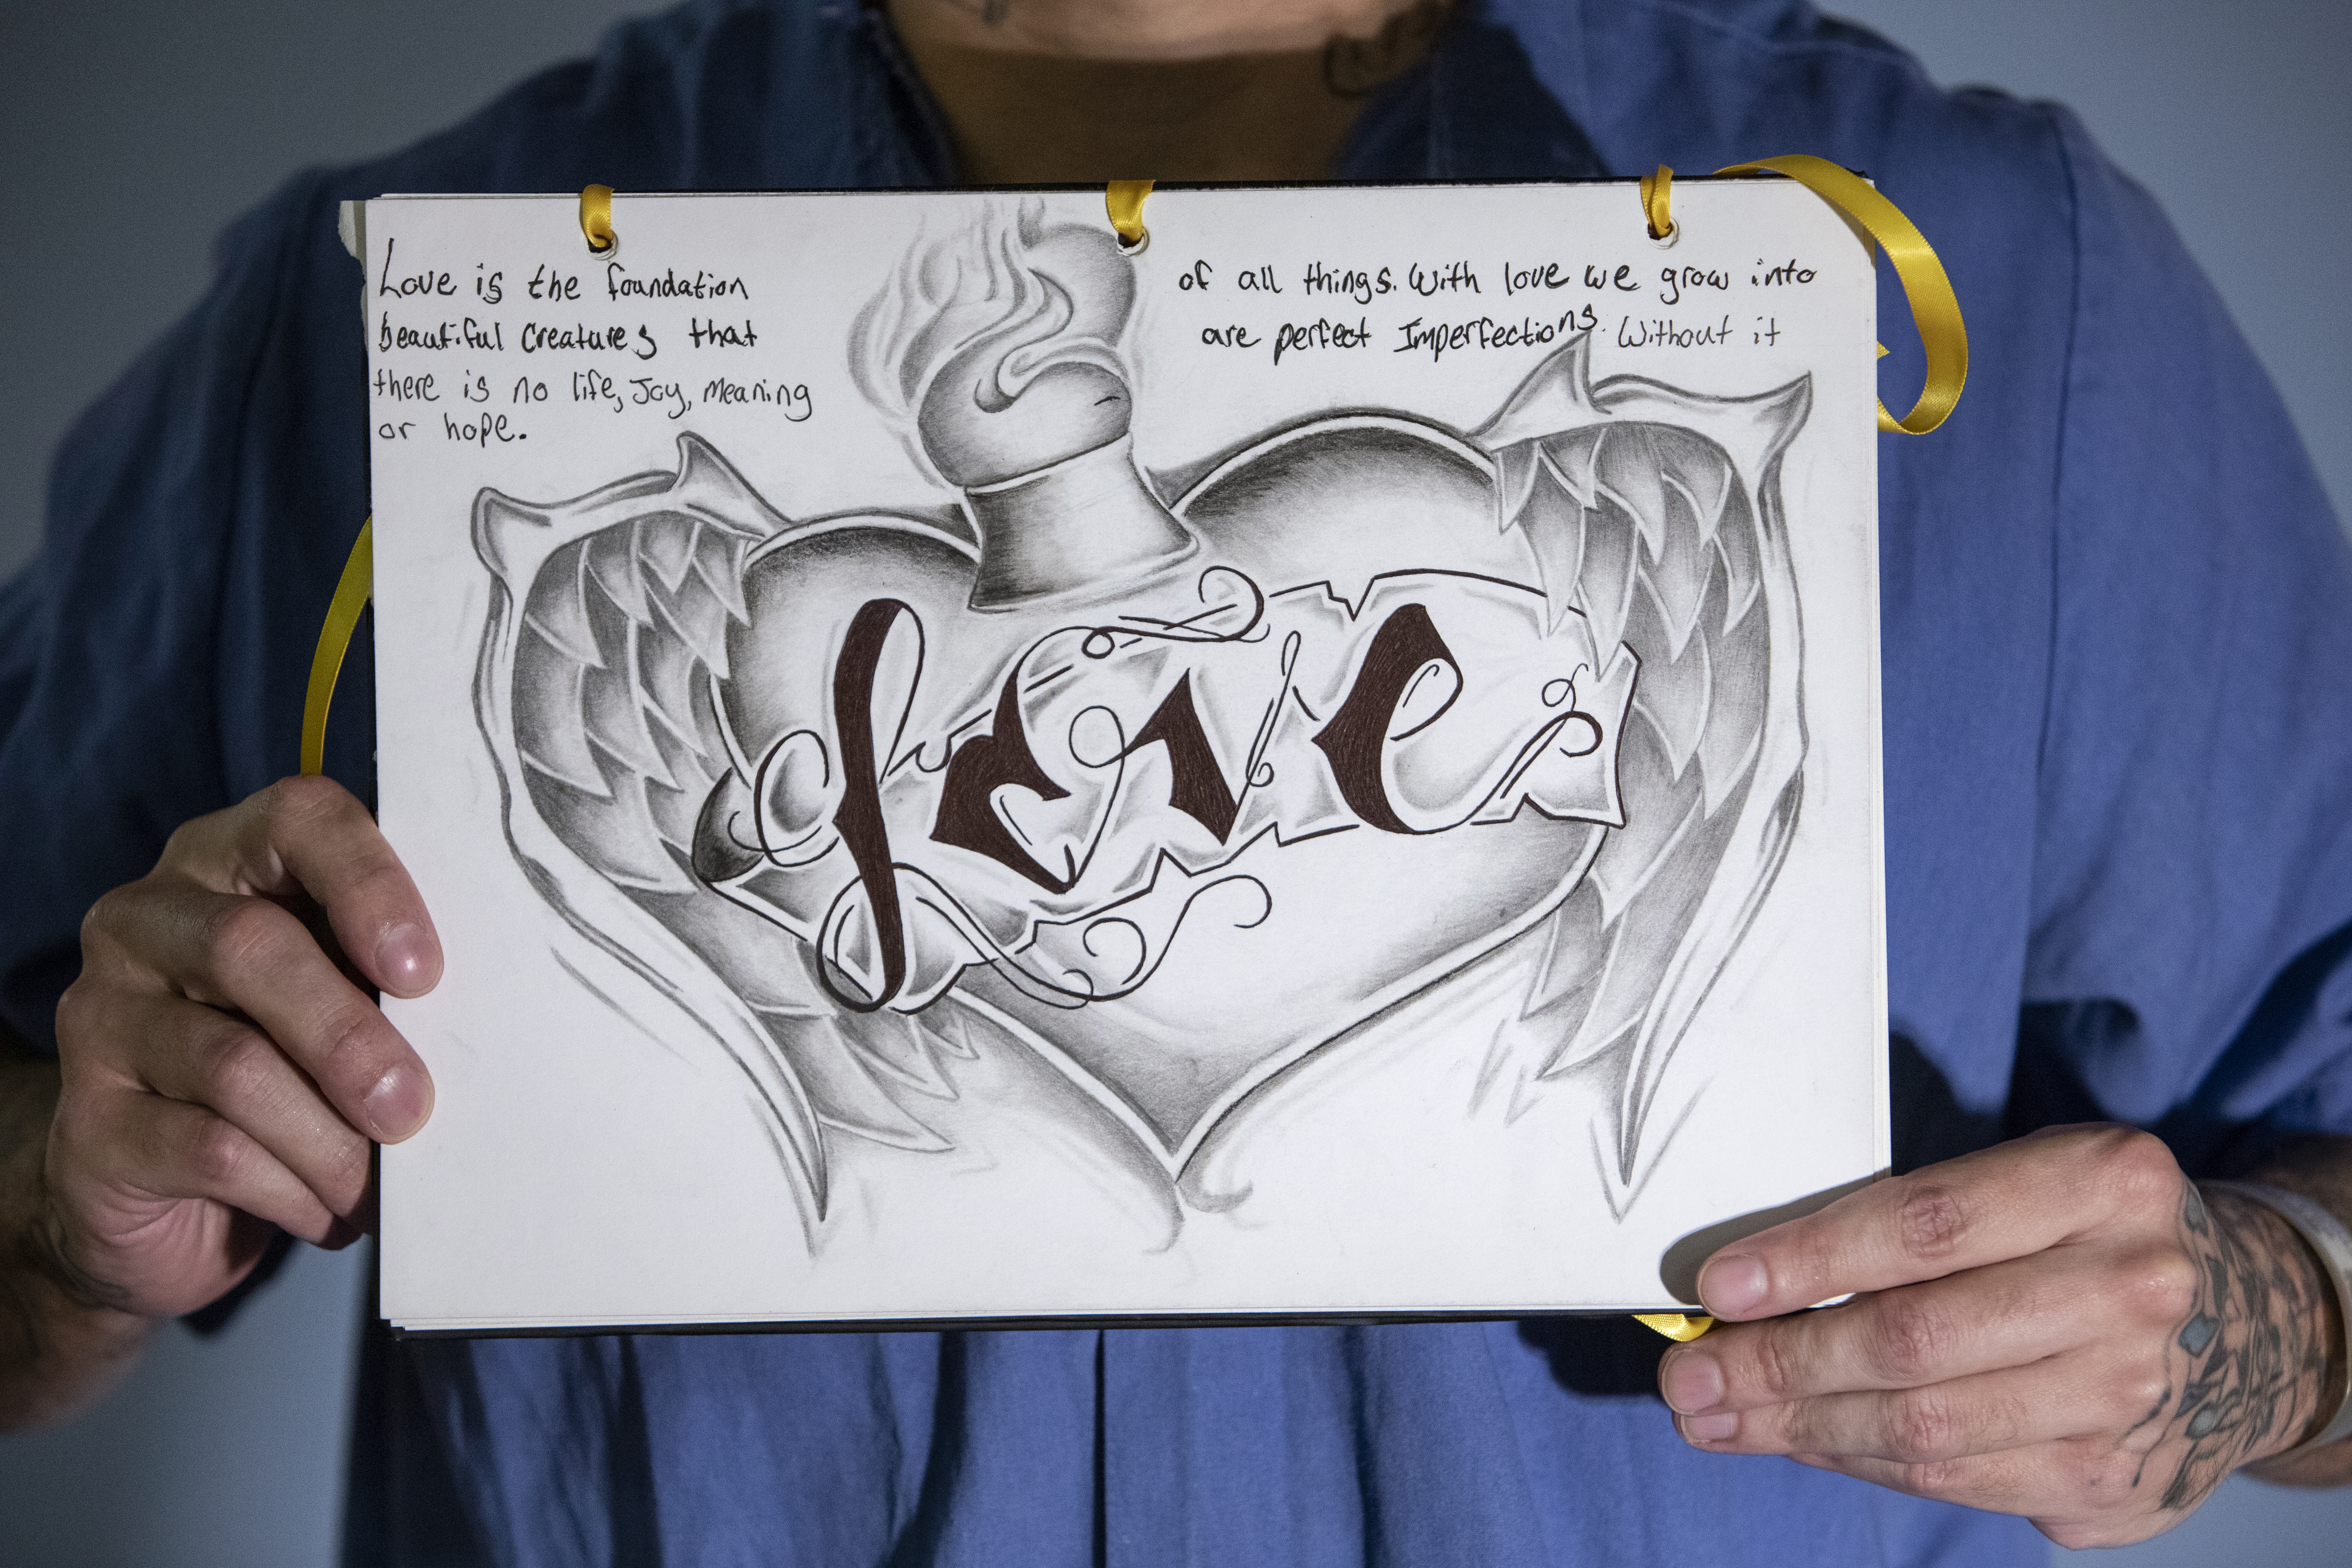 Love is the foundation of all things. With love we grow into
beautiful creatures that are perfect Imperfections. Without it
there is no life, Joy, Meaning
or hope.
Love